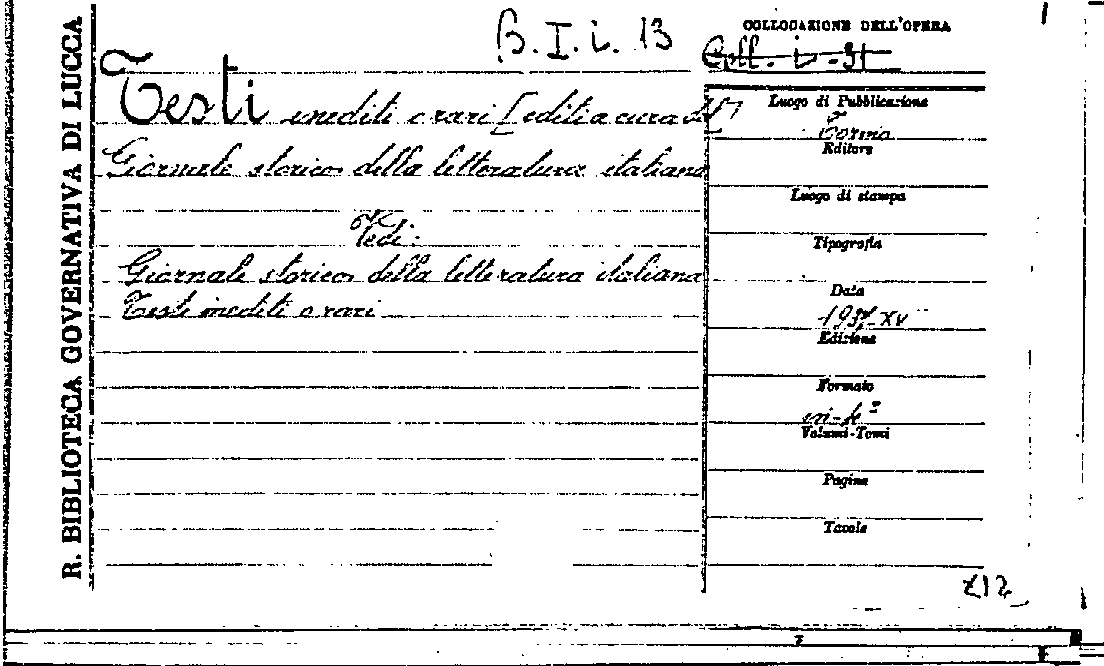 R. BIBLIOTECA GOVERNATIVA DI LUCCA
B. I. i. 13
COLLOCAZIONE DELL'OPERA
Coll. i - 31
Testi inediti o rari [editi a cura del]
Giornale storico della letteratura italiana
Vedi:
Giornale storico della letteratura italiana
Testi inediti o rari
Luogo di Pubblicazione
Torino
Editore
Luogo di stampa
Tipografia
Data
1937-XV
Edizione
Formato
in-4°
Volumi-Tomi
Pagine
Tavole